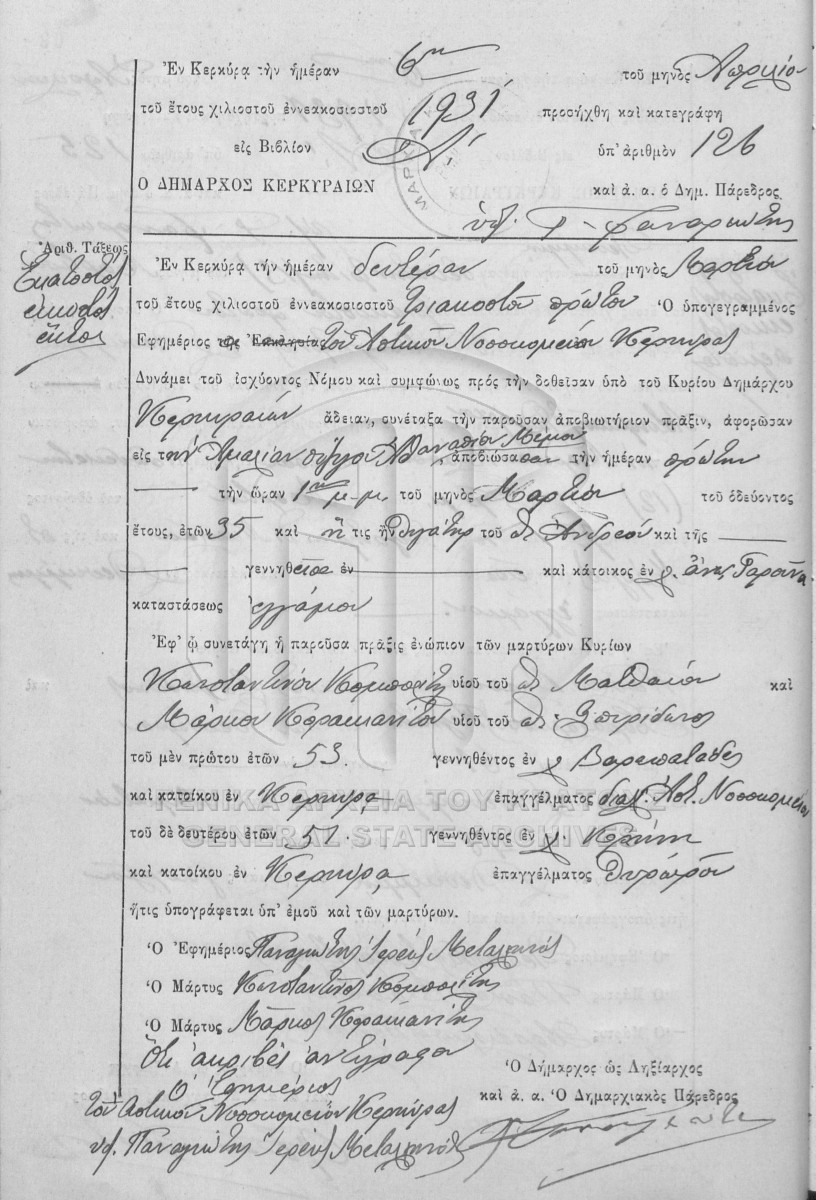 Ἐν Κερκύρᾳ τὴν ἡμέραν 6ην τοῦ μηνὸς Ἀπριλίου
τοῦ ἔτους χιλιοστοῦ ἐννεακοσιοστοῦ 1931 προσήχθη καὶ κατεγράφη
εἰς Βιβλίον Α΄. ὑπ' ἀριθμὸν 126
Ο ΔΗΜΑΡΧΟΣ ΚΕΡΚΥΡΑΙΩΝ καὶ ἀ. α. ὁ Δημ. Πάρεδρος
ὑπ.
Ἀριθ. Τάξεως
Ἑκατοστὸς
εἰκοστὸς
ἕκτος
Ἐν Κερκύρᾳ τὴν ἡμέραν δευτέραν τοῦ μηνὸς Μαρτίου
τοῦ ἔτους χιλιοστοῦ ἐννεακοσιοστοῦ τριακοστοῦ πρώτου Ὁ ὑπογεγραμμένος
Ἐφημέριος τῆς Ἐκκλησίας τοῦ Ἀστικοῦ Νοσοκομείου Κερκύρας
Δυνάμει τοῦ ἰσχύοντος Νόμου καὶ συμφώνως πρὸς τὴν δοθεῖσαν ὑπὸ τοῦ Κυρίου Δημάρχου
Κερκυραίων ἄδειαν, συνέταξα τὴν παροῦσαν ἀποβιωτήριον πρᾶξιν, ἀφορῶσαν
εἰς τὴν Ἀμαλίαν σύζυγον Ἀθανασίου ἀποβιώσασαν τὴν ἡμέραν πρώτην
τὴν ὥραν 1ην μ.μ. τοῦ μηνὸς Μαρτίου τοῦ ὁδεύοντος
ἔτους, ἐτῶν 35 καὶ ἥτις ἦν θυγάτηρ τοῦ Ἀνδρέου καὶ τῆς
γεννηθεῖσα ἐν καὶ κάτοικος ἐν χ. ἄνω Γαρούνα
καταστάσεως ἐγγάμου
Ἐφ' ᾧ συνετάγη ἡ παροῦσα πρᾶξις ἐνώπιον τῶν μαρτύρων Κυρίων
Κωνσταντίνου υἱοῦ τοῦ Ματθαίου καὶ
Μάρκου Κορακιανίτου υἱοῦ τοῦ Σπυρίδωνος
τοῦ μὲν πρώτου ἐτῶν 53 γεννηθέντος ἐν χ. Βαρυπατάδες
καὶ κατοίκου ἐν Κερκύρᾳ ἐπαγγέλματος Ἀστ. Νοσοκομείου
τοῦ δὲ δευτέρου ἐτῶν 51. γεννηθέντος ἐν χ.
καὶ κατοίκου ἐν Κερκύρᾳ ἐπαγγέλματος θυρωροῦ
ἥτις ὑπογράφεται ὑπ' ἐμοῦ καὶ τῶν μαρτύρων.
Ὁ Ἐφημέριος Παναγιώτης Ἱερεὺς Μεταλληνός
Ὁ Μάρτυς Κωνσταντῖνος
Ὁ Μάρτυς Μάρκος Κορακιανίτης
Ὅτι ἀκριβὲς ἀντίγραφον
Ὁ Ἐφημέριος
τοῦ Ἀστικοῦ Νοσοκομείου Κερκύρας
ὑπ. Παναγιώτης Ἱερεὺς Μεταλληνός
Ὁ Δήμαρχος ὡς Ληξίαρχος
καὶ ἀ. α. Ὁ Δημαρχιακὸς Πάρεδρος
ΓΕΝΙΚΑ ΑΡΧΕΙΑ ΤΟΥ ΚΡΑΤΟΥΣ
GENERAL STATE ARCHIVES